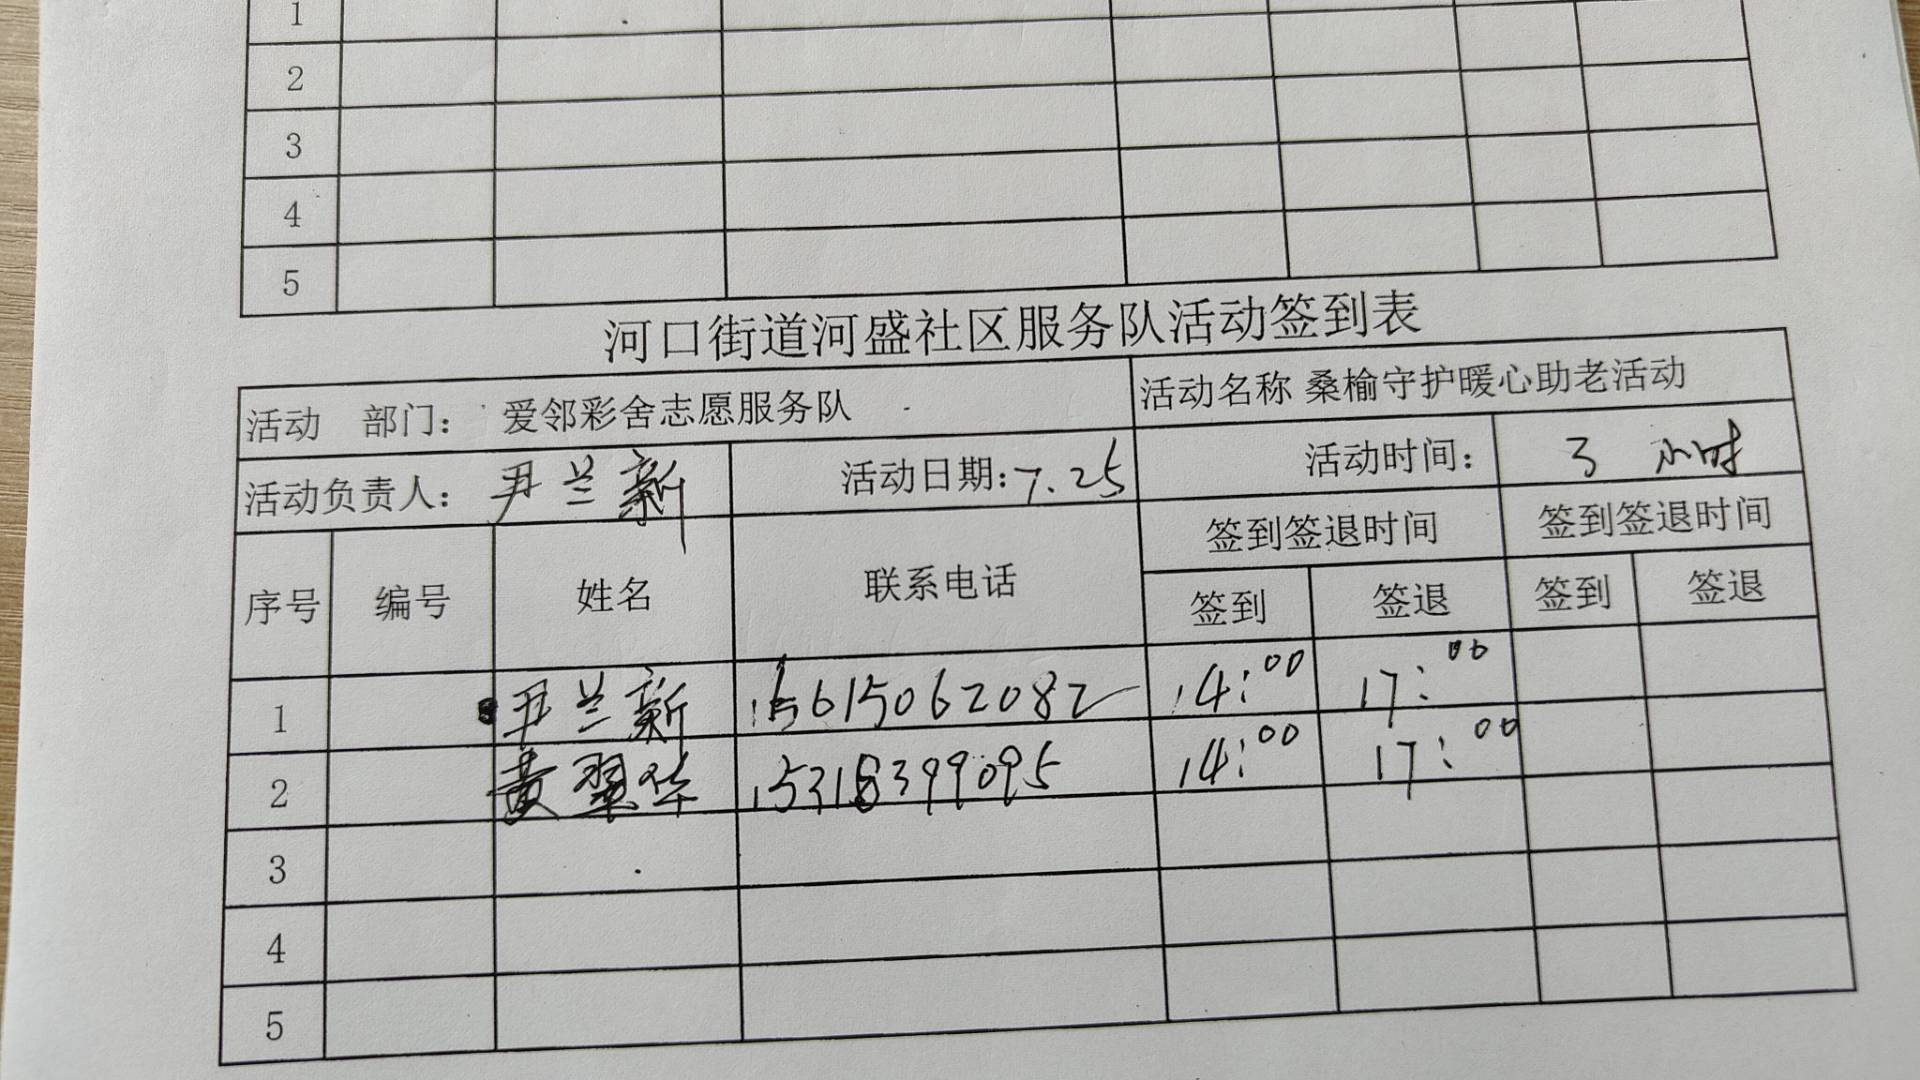 1
2
3
4
5
河口街道河盛社区服务队活动签到表
活动 部门： 爱邻彩舍志愿服务队 活动名称 桑榆守护暖心助老活动
活动负责人： 尹兰新 活动日期：7.25 活动时间： 3 小时
序号 编号 姓名 联系电话 签到签退时间 签到签退时间
签到 签退 签到 签退
1 尹兰新 15615062082 14:00 17:00
2 黄翠华 15318399095 14:00 17:00
3
4
5